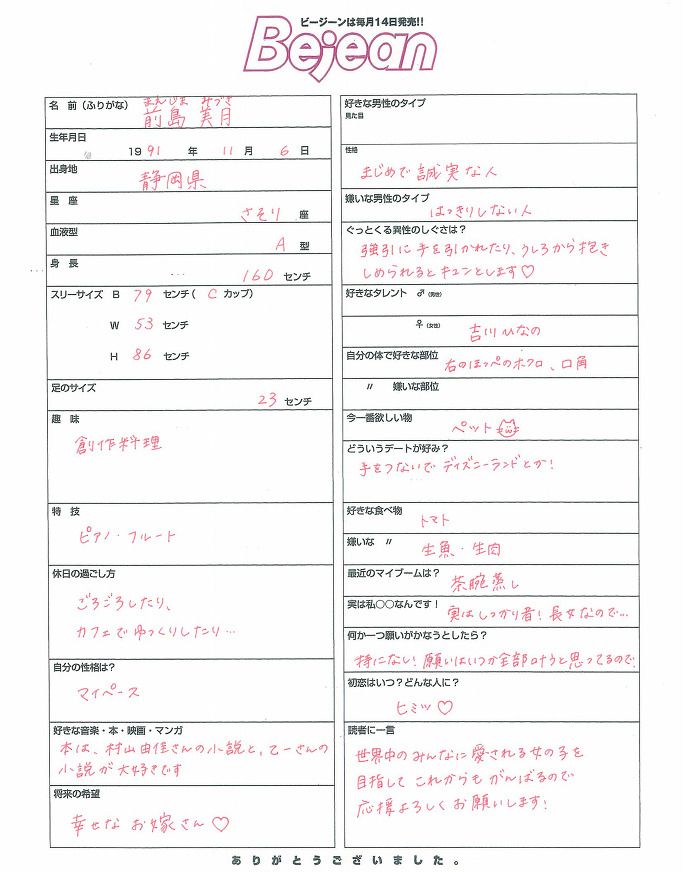 ビージーンは毎月14日発売!!
Bejean
名 前（ふりがな） まえじま みづき
前島 美月
生年月日
1991 年 11 月 6 日
出身地
静岡県
星 座
さそり 座
血液型
A 型
身 長
160 センチ
スリーサイズ B 79 センチ（ C カップ）
W 53 センチ
H 86 センチ
足のサイズ
23 センチ
趣 味
創作料理
特 技
ピアノ・フルート
休日の過ごし方
ごろごろしたり、
カフェでゆっくりしたり…
自分の性格は？
マイペース
好きな音楽・本・映画・マンガ
本は、村山由佳さんの小説と、てーさんの
小説が大好きです
将来の希望
幸せな お嫁さん♡
好きな男性のタイプ
見た目
性格
まじめで誠実な人
嫌いな男性のタイプ
はっきりしない人
ぐっとくる異性のしぐさは？
強引に手を引かれたり、うしろから抱き
しめられるとキュンとします♡
好きなタレント ♂（男性）
♀（女性） 吉川ひなの
自分の体で好きな部位 右のほっぺのホクロ、口角
〃 嫌いな部位
今一番欲しい物
ペット
どういうデートが好み？
手をつないでディズニーランドとか!
好きな食べ物
トマト
嫌いな 〃
生魚・生肉
最近のマイブームは？
茶碗蒸し
実は私○○なんです！
実はしっかり者！長女なので…
何か一つ願いがかなうとしたら？
特になし！願いはいつか全部叶うと思ってるので。
初恋はいつ？どんな人に？
ヒミツ♡
読者に一言
世界中のみんなに愛される女の子を
目指して これからもがんばるので
応援よろしくお願いします！
ありがとうございました。